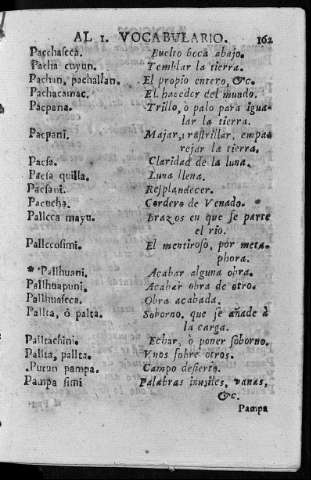 AL 1. VOCABULARIO. 162
Pacchaseca. Buelto boca abajo.
Pacha cuyun. Temblar la tierra.
Pachan, pachallan. El propio entero, &c.
Pachacamac. El hacedor del mundo.
Pacpana. Trillo, ò palo para igua-
lar la tierra.
Pacpani. Majar, rastrillar, empa-
rejar la tierra.
Pacsa. Claridad de la luna.
Pacsa quilla. Luna llena.
Pacsani. Resplandecer.
Pacucha. Cordero de Venado.
Pallcca mayu. Brazos en que se parte
el rio.
Pallccosimi. El mentiroso, por meta-
phora.
* Pallhuani. Acabar alguna obra.
Pallhuapuni. Acabar obra de otro.
Pallhuasca. Obra acabada.
Pallta, ò palta. Soborno, que se añade à
la carga.
Palltachini. Echar, ò poner soborno.
Pallta, pallta. Vnos sobre otros.
Purun pampa. Campo desierto.
Pampa simi Palabras inutiles, vanas,
&c.
Pampa